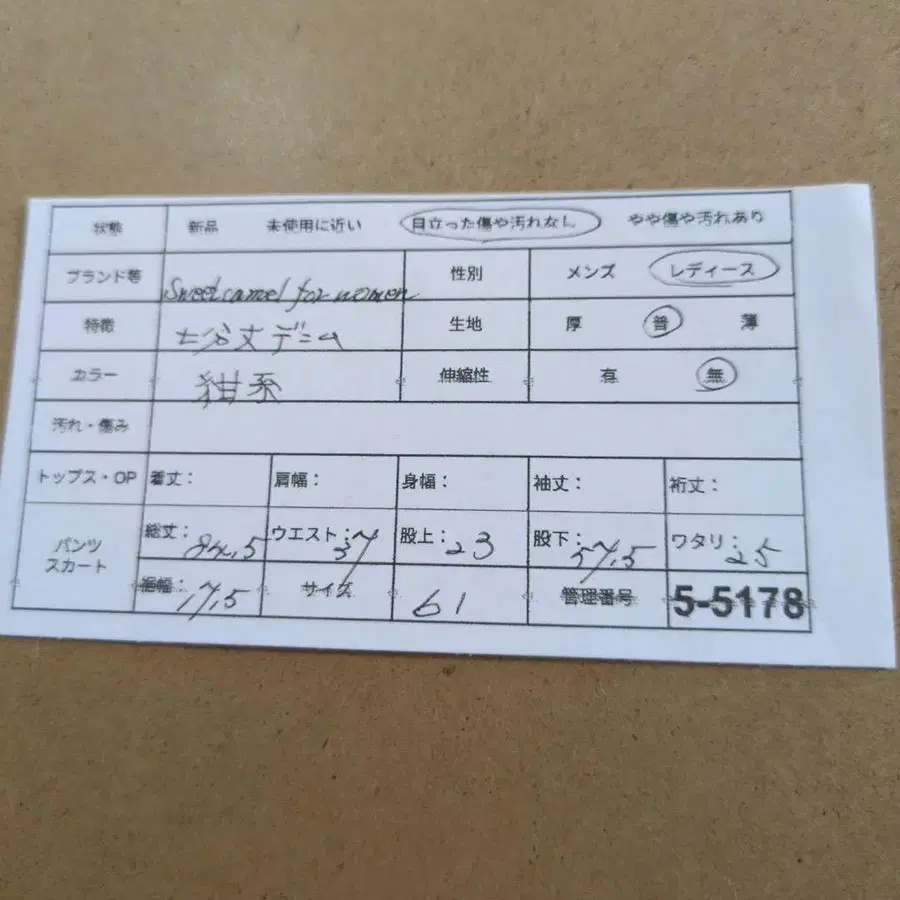 状態 新品 未使用に近い 目立った傷や汚れなし やや傷や汚れあり
ブランド等 Sweet camel for women 性別 メンズ レディース
特徴 七分丈デニム 生地 厚 普 薄
カラー 紺系 伸縮性 有 無
汚れ・傷み
トップス・OP 着丈： 肩幅： 身幅： 袖丈： 裄丈：
パンツ スカート 総丈：84.5 ウエスト：37 股上：23 股下：57.5 ワタリ：25
裾幅：17.5 サイズ 61 管理番号 5-5178